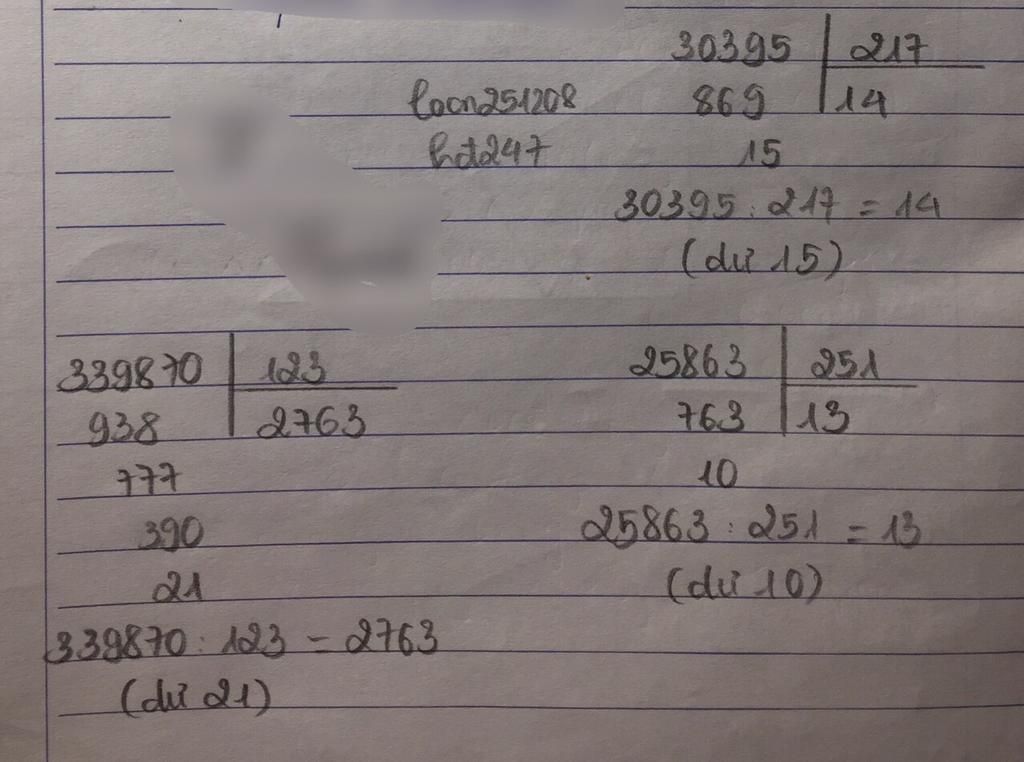 30395 217
loan251208 869 14
hd247 15
30395 : 217 = 14
(dư 15)
339870 123
938 2763
777
390
21
339870 : 123 = 2763
(dư 21)
25863 251
763 13
10
25863 : 251 = 13
(dư 10)